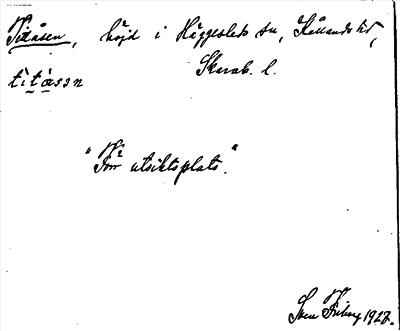 Titåsen, höjd i Häggesleds sn, Kållands hd,
Skarab. l.
titåsen
"För utsiktsplats."
Sven Friberg 1927.